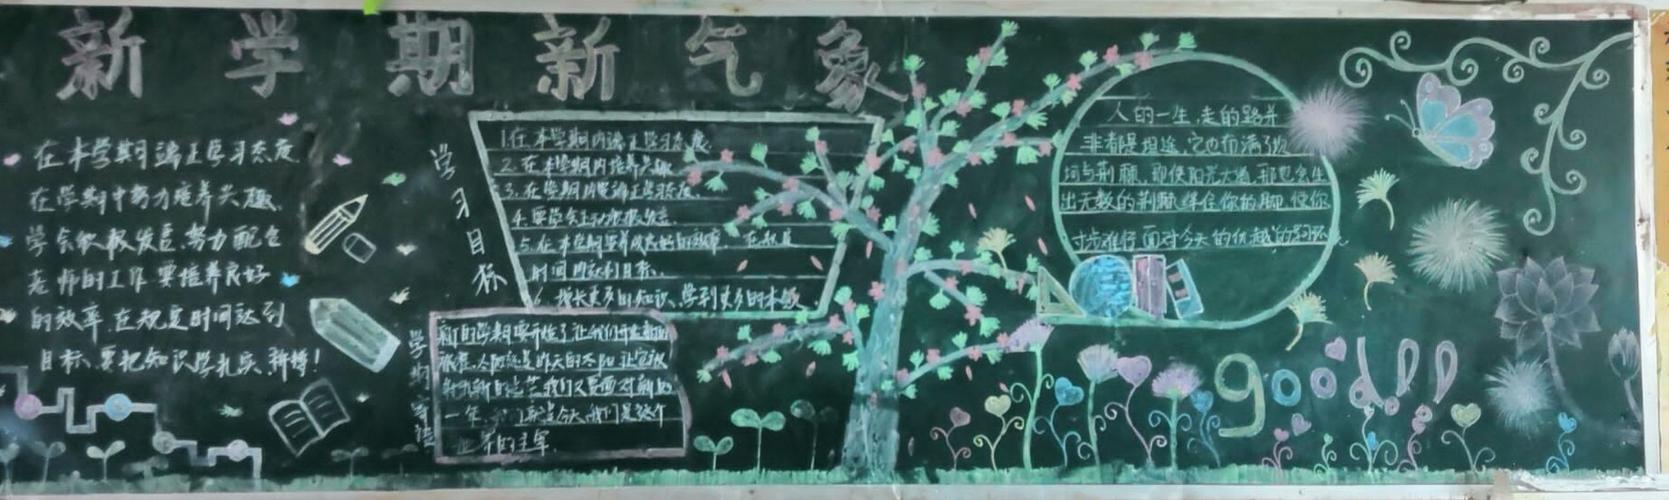 新学期新气象
在本学期端正学习态度
在学期中努力培养兴趣、
学会积极发言、努力配合
老师的工作 要培养良好
的效率、在规定时间达到
目标、要把知识学扎实、拼搏!
学习目标
1.在本学期内端正学习态度
2.在本学期内培养兴趣
3.在学期内要端正学习态度、
4.要学会主动积极发言、
5.在本学期培养良好的效率、在规定
时间内达到目标、
6、增长更多的知识、学到更多的本领
学期寄语
新的学期要开始了让我们
今天的太阳
我们又要面对新的
一年、今天我们是这个
世界的主宰.
人的一生,走的路并
非都是坦途,它也布满了坎
坷与荆棘,即使阳光大道,那也会生
出无数的荆棘绊住你的脚,使你
寸步难行 面对今天的优越的环环
good!!